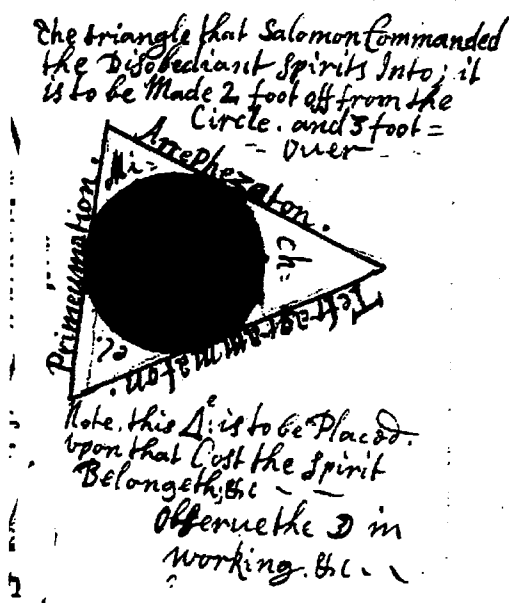 the triangle that Salomon Commanded
the Disobediant Spirits Into; it
is to be Made 2 foot off from the
Circle. and 3 foot =
Ouer
Anephezaton.
Mi=
Primeumation.
ch=
Tetragrammaton.
el.
Note. this Δe: is to be Placed.
vpon that Cost the Spirit
Belongeth; &c
Obserue the ☽ in
working. &c.